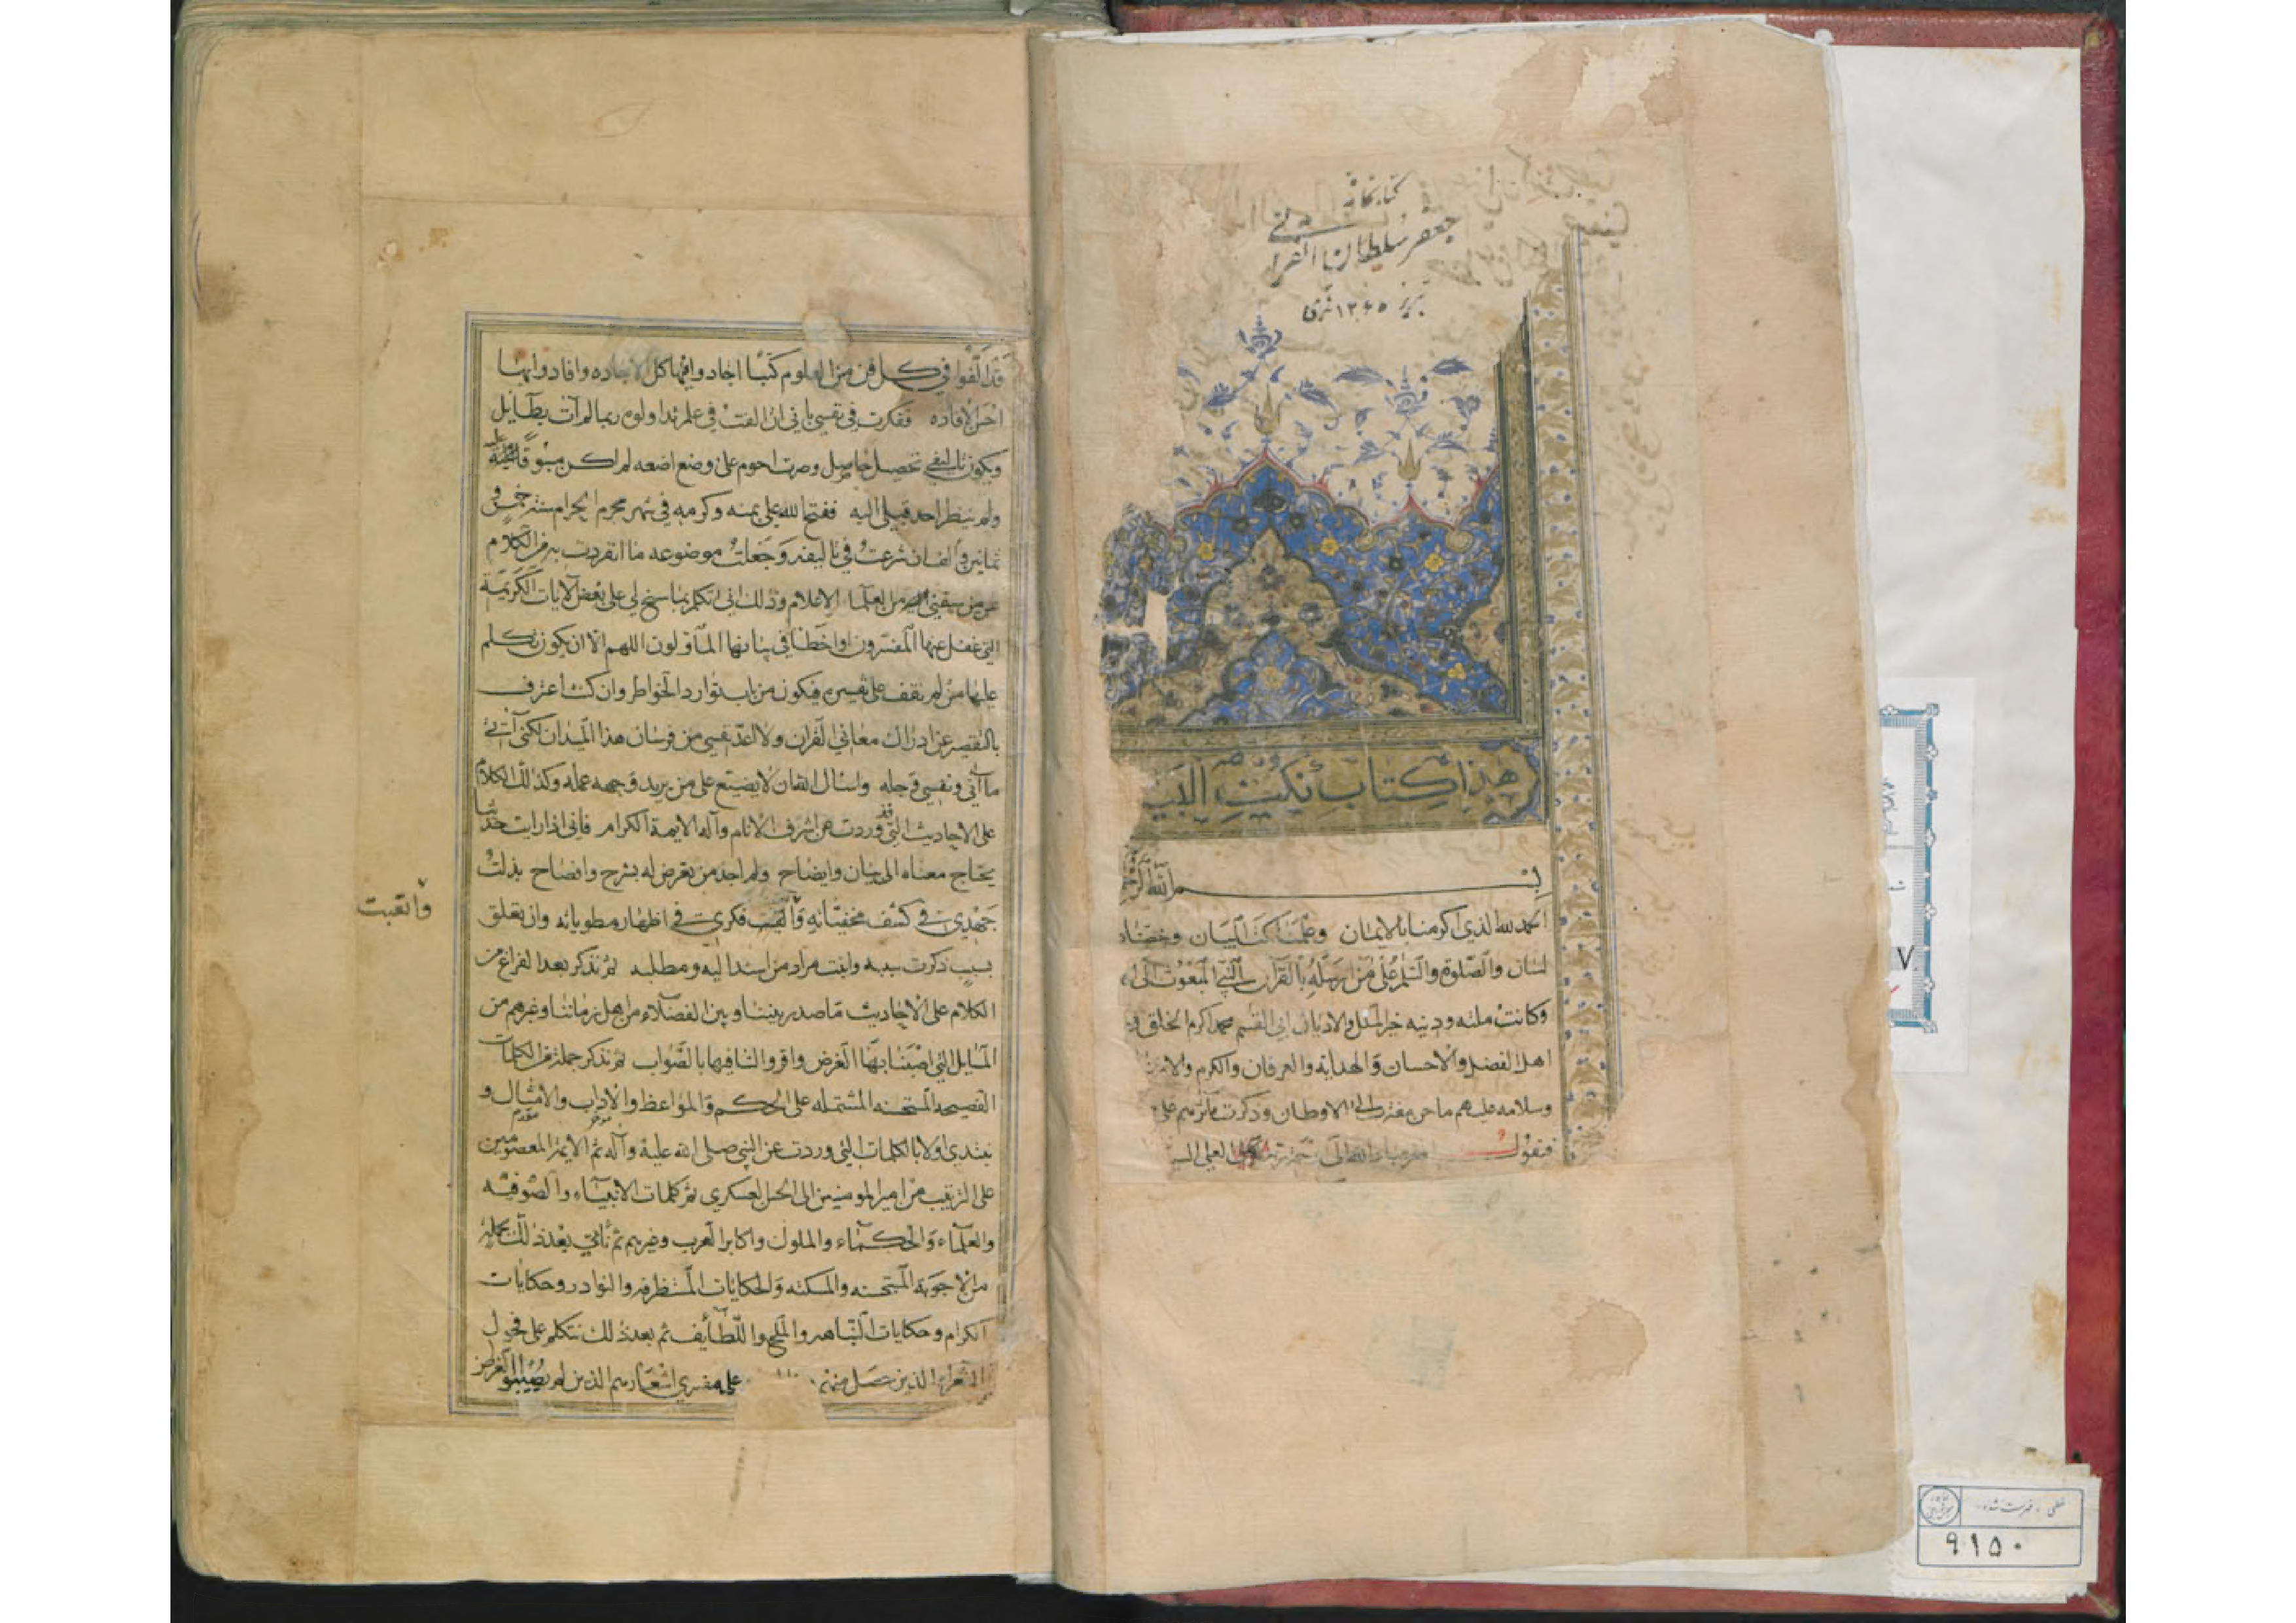 كتابخانه
جعفر سلطان القرائي
تبريز ١٣٤٥ قمرى
هذا كتاب نكت البيان
بسم الله الرحمن
الحمد لله الذي اكرمنا بالايمان وعلمنا البيان وخصنا
لسان والصلوة والسلم على من ارسله بالقرآن النبي المبعوث الى
وكانت ملته ودينه خير الملل والاديان ابي القسم محمد اكرم الخلق
اهل الفضل والاحسان والهداية والعرفان والكرم والا
وسلامه عليهم ما حن مغترب الى الاوطان وذكرت مآثرهم على
فيقول الى رحمة ربه العلي
قد الفوا في كل فن من العلوم كتبا اجادوا فيها كل الاجاده وافادوا بها
احسن الافاده ففكرت في نفسي باني ان الفت في علم تداولوه ربما لم آت بطايل
ويكون تاليفي تحصيل حاصل وصرت احوم على وضع اضعه لم اكن مسبوقا عليه
ولم ينظر احد قبلي اليه ففتح الله علي بمنه وكرمه في شهر محرم الحرام سنة خمس و
ثمانين والف ان شرعت في تاليفه وجعلت موضوعه ما انفردت به من الكلام
عن من سبقني من العلماء الاعلام وذلك اني اتكلم بما سنح لي على بعض الآيات الكريمة
التي غفل عنها المفسرون او اخطأ في بيانها المأولون اللهم الا ان يكون تكلم
عليها من لم نقف على تفسيره فيكون من باب توارد الخواطر وان كنت اعترف
بالتقصير عن ادراك معاني القرآن ولا اعد نفسي من فرسان هذا الميدان لكني آتي
ما آتي ونفسي وجله واسال الله ان لا يضيع على من يريد وجهه عمله وكذلك الكلام
على الاحاديث التي وردت عن اشرف الانام وآله الايمة الكرام فاني اذا رايت حديثا
يحتاج معناه الى بيان وايضاح ولم اجد من يعرض له بشرح وافصاح بذلت
جهدي في كشف مخفياته واتعبت فكري في اظهار مطوياته وان تعلق
بسبب ذكرت سببه وابنت مراد من اسند اليه ومطلبه ثم نذكر بعد الفراغ من
الكلام على الاحاديث ما صدر بيننا وبين الفضلاء من اهل زماننا وغيرهم من
المسايل التي اصبنا بها الغرض واقروا لنا فيها بالصواب ثم نذكر جملة من الكلمات
الفصيحه المستحسنه المشتمله على الحكم والمواعظ والاداب والامثال و
نبتدي اولا بالكلمات التي وردت عن النبي صلى الله عليه وآله ثم الايمة المعصومين
على الترتيب من امير المومنين الى الحسن العسكري ثم كلمات الانبياء والصوفيه
والعلماء والحكماء والملوك واكابر العرب وغيرهم ثم ناتي بعد ذلك بجملة
من الاجوبة المستحسنه والمسكته والحكايات المستظرفه والنوادر وحكايات
الكرام وحكايات والملح واللطايف ثم بعد ذلك نتكلم على فحول
الشعراء الذين حصل منهم على مفسري اشعارهم الذين لم يصيبوا الغرض
واتعبت
خطى - فهرست شده
٩١٥٠
٧